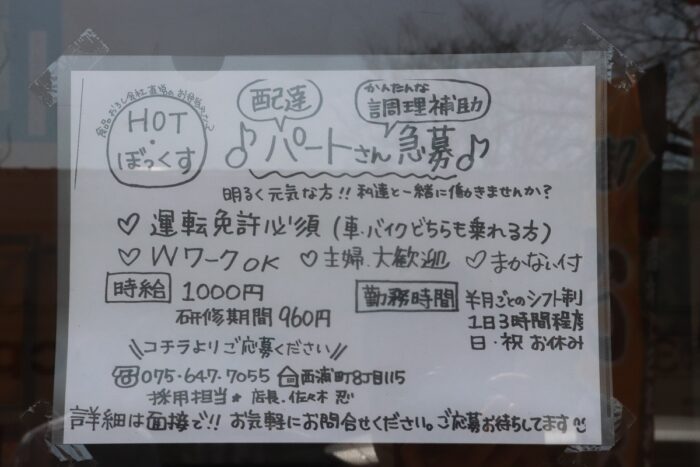 食品おろし会社直営のお弁当屋さん
HOT・ぼっくす
配達
かんたんな調理補助
♪パートさん急募♪
明るく元気な方!!私達と一緒に働きませんか?
♡運転免許必須(車・バイクどちらも乗れる方)
♡WワークOK ♡主婦、大歓迎 ♡まかない付
時給 1000円
研修期間 960円
勤務時間 半月ごとのシフト制
1日3時間程度
日・祝 お休み
\\コチラよりご応募ください//
☎075-647-7055 西浦町8丁目115
採用担当* 店長・佐々木 忍
詳細は面接で!!お気軽にお問合せください。ご応募お待ちしてます